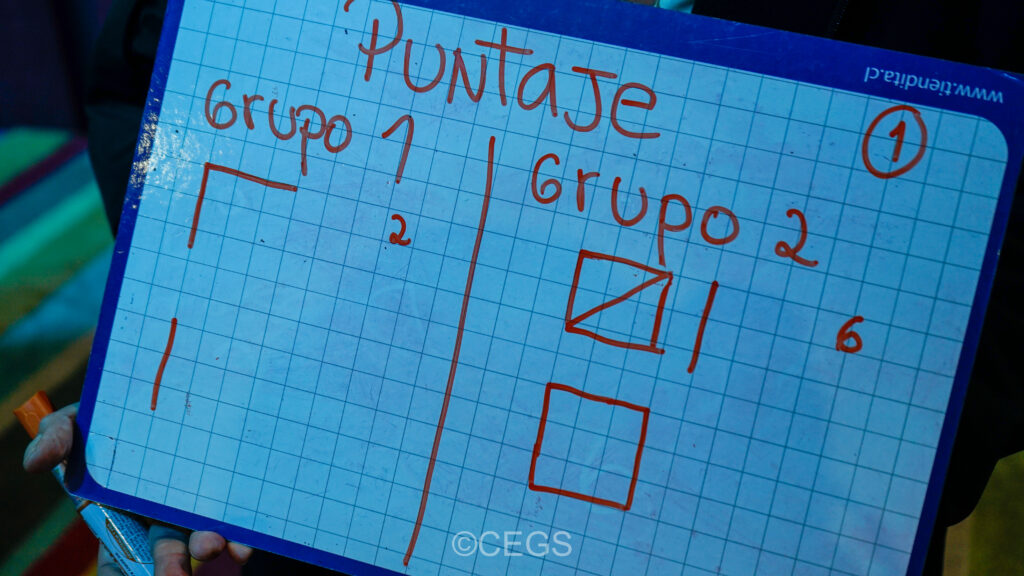 www.tiendita.cl
Puntaje
1
Grupo 1
2
Grupo 2
6
©CEGS